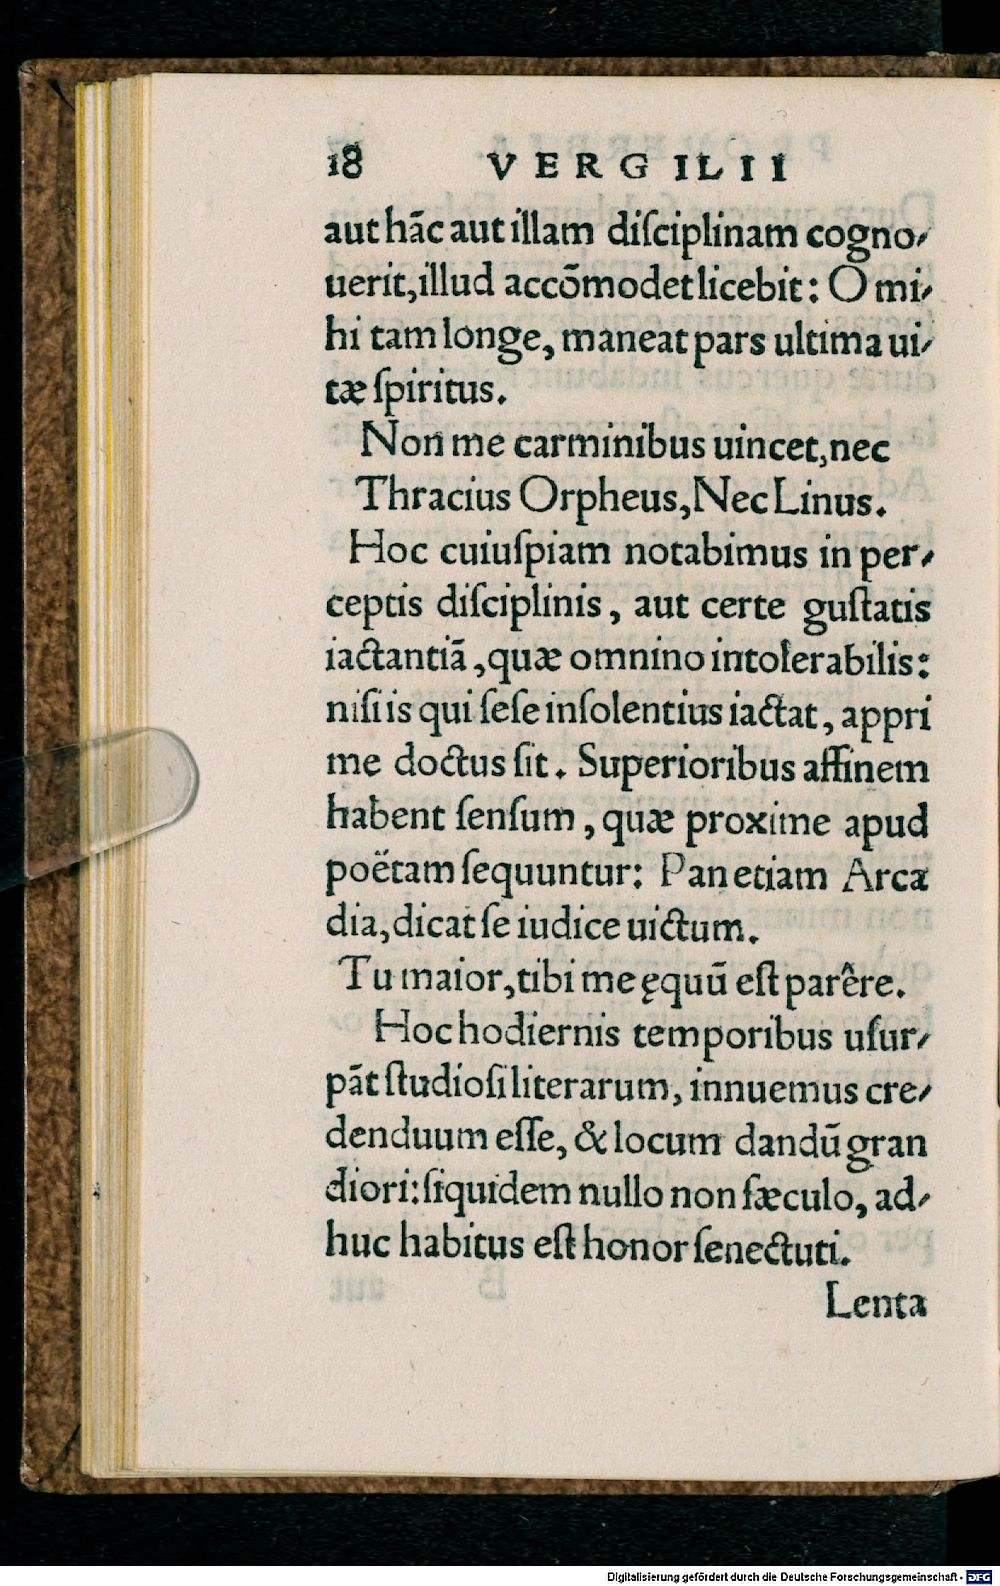 18 VERGILII
aut hāc aut illam diſciplinam cogno⸗
uerit, illud accōmodet licebit: O mi⸗
hi tam longe, maneat pars ultima ui⸗
tæ ſpiritus.
Non me carminibus uincet, nec
Thracius Orpheus, Nec Linus.
Hoc cuiuſpiam notabimus in per⸗
ceptis diſciplinis, aut certe guſtatis
iactantiā, quæ omnino intolerabilis:
niſi is qui ſeſe inſolentius iactat, appri
me doctus ſit. Superioribus affinem
habent ſenſum, quæ proxime apud
poëtam ſequuntur: Pan etiam Arca
dia, dicat ſe iudice uictum.
Tu maior, tibi me ęquū eſt parêre.
Hoc hodiernis temporibus uſur⸗
pāt ſtudioſi literarum, innuemus cre⸗
denduum eſſe, & locum dandū gran
diori: ſiquidem nullo non ſæculo, ad⸗
huc habitus eſt honor ſenectuti.
Lenta
Digitalisierung gefördert durch die Deutsche Forschungsgemeinschaft - DFG